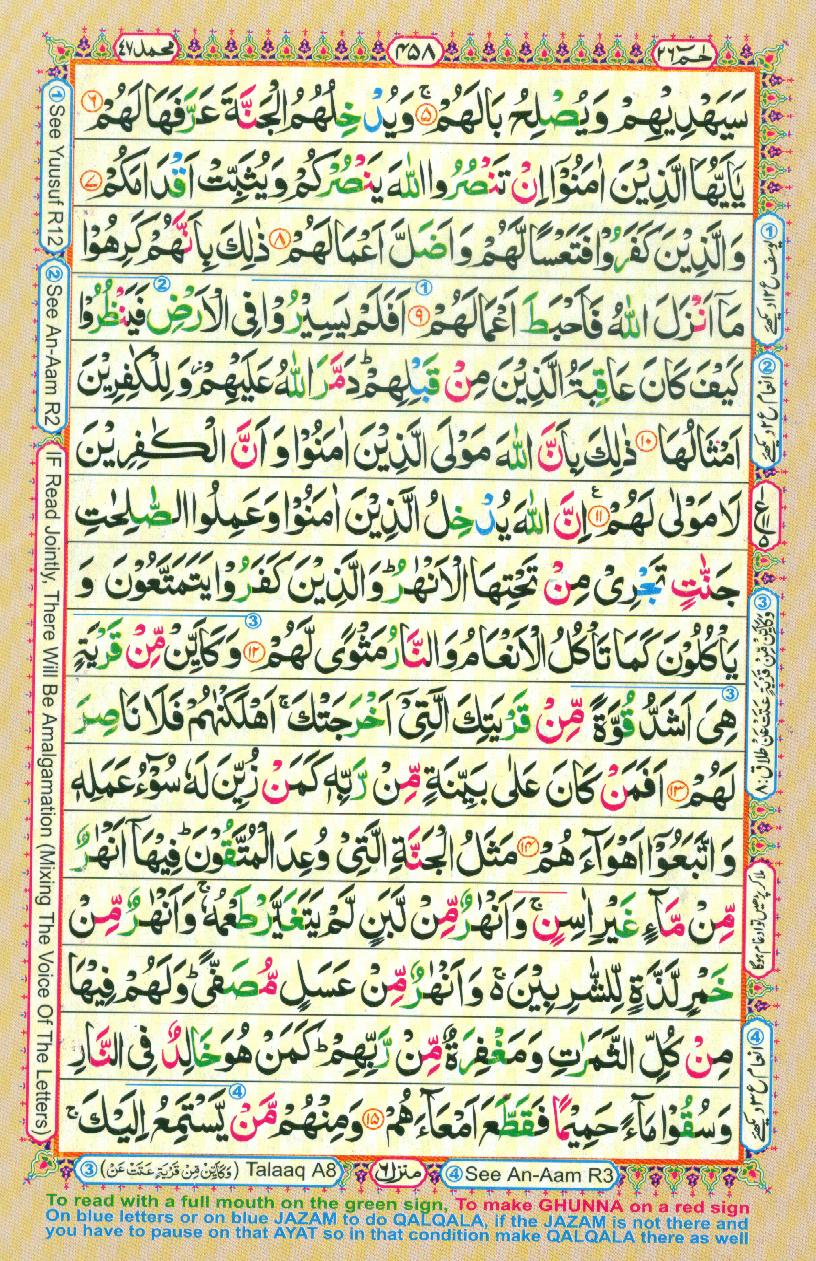 محمد ٤٧
٤٥٨
حٰمٓ ٢٦
سَيَهْدِيْهِمْ وَيُصْلِحُ بَالَهُمْ ۚ ٥ وَيُدْخِلُهُمُ الْجَنَّةَ عَرَّفَهَا لَهُمْ ٦
يٰۤاَيُّهَا الَّذِيْنَ اٰمَنُوْۤا اِنْ تَنْصُرُوا اللّٰهَ يَنْصُرْكُمْ وَيُثَبِّتْ اَقْدَامَكُمْ ٧
وَالَّذِيْنَ كَفَرُوْا فَتَعْسًا لَّهُمْ وَاَضَلَّ اَعْمَالَهُمْ ٨ ذٰلِكَ بِاَنَّهُمْ كَرِهُوْا
مَاۤ اَنْزَلَ اللّٰهُ فَاَحْبَطَ اَعْمَالَهُمْ ٩ اَفَلَمْ يَسِيْرُوْا فِى الْاَرْضِ فَيَنْظُرُوْا
كَيْفَ كَانَ عَاقِبَةُ الَّذِيْنَ مِنْ قَبْلِهِمْ ؕ دَمَّرَ اللّٰهُ عَلَيْهِمْ ؗ وَلِلْكٰفِرِيْنَ
اَمْثَالُهَا ١٠ ذٰلِكَ بِاَنَّ اللّٰهَ مَوْلَى الَّذِيْنَ اٰمَنُوْا وَاَنَّ الْكٰفِرِيْنَ
لَا مَوْلٰى لَهُمْ ١١ اِنَّ اللّٰهَ يُدْخِلُ الَّذِيْنَ اٰمَنُوْا وَعَمِلُوا الصّٰلِحٰتِ
جَنّٰتٍ تَجْرِىْ مِنْ تَحْتِهَا الْاَنْهٰرُ ؕ وَالَّذِيْنَ كَفَرُوْا يَتَمَتَّعُوْنَ وَ
يَاْكُلُوْنَ كَمَا تَاْكُلُ الْاَنْعَامُ وَالنَّارُ مَثْوًى لَّهُمْ ١٢ وَكَاَيِّنْ مِّنْ قَرْيَةٍ
هِىَ اَشَدُّ قُوَّةً مِّنْ قَرْيَتِكَ الَّتِىْۤ اَخْرَجَتْكَ ۚ اَهْلَكْنٰهُمْ فَلَا نَاصِرَ
لَهُمْ ١٣ اَفَمَنْ كَانَ عَلٰى بَيِّنَةٍ مِّنْ رَّبِّهٖ كَمَنْ زُيِّنَ لَهٗ سُوْٓءُ عَمَلِهٖ
وَاتَّبَعُوْۤا اَهْوَآءَهُمْ ١٤ مَثَلُ الْجَنَّةِ الَّتِىْ وُعِدَ الْمُتَّقُوْنَ ؕ فِيْهَاۤ اَنْهٰرٌ
مِّنْ مَّآءٍ غَيْرِ اٰسِنٍ ۚ وَاَنْهٰرٌ مِّنْ لَّبَنٍ لَّمْ يَتَغَيَّرْ طَعْمُهٗ ۚ وَاَنْهٰرٌ مِّنْ
خَمْرٍ لَّذَّةٍ لِّلشّٰرِبِيْنَ ۬ۚ وَاَنْهٰرٌ مِّنْ عَسَلٍ مُّصَفًّى ؕ وَلَهُمْ فِيْهَا
مِنْ كُلِّ الثَّمَرٰتِ وَمَغْفِرَةٌ مِّنْ رَّبِّهِمْ ؕ كَمَنْ هُوَ خَالِدٌ فِى النَّارِ
وَسُقُوْا مَآءً حَمِيْمًا فَقَطَّعَ اَمْعَآءَهُمْ ١٥ وَمِنْهُمْ مَّنْ يَّسْتَمِعُ اِلَيْكَ ۚ
① See Yuusuf R12
② See An-Aam R2
IF Read Jointly, There Will Be Amalgamation (Mixing The Voice Of The Letters)
① یوسف ع ١٢ دیکھئے
② انعام ع ٢ دیکھئے
③ وَكَاَيِّنْ مِّنْ قَرْيَةٍ عَتَتْ عَنْ طلاق: ٨
ملا کر پڑھیں تو ادغام ہوگا
④ انعام ع ٣ دیکھئے
③ (وَكَاَيِّنْ مِّنْ قَرْيَةٍ عَتَتْ عَنْ) Talaaq A8
منزل ٦
④ See An-Aam R3
To read with a full mouth on the green sign, To make GHUNNA on a red sign
On blue letters or on blue JAZAM to do QALQALA, if the JAZAM is not there and
you have to pause on that AYAT so in that condition make QALQALA there as well